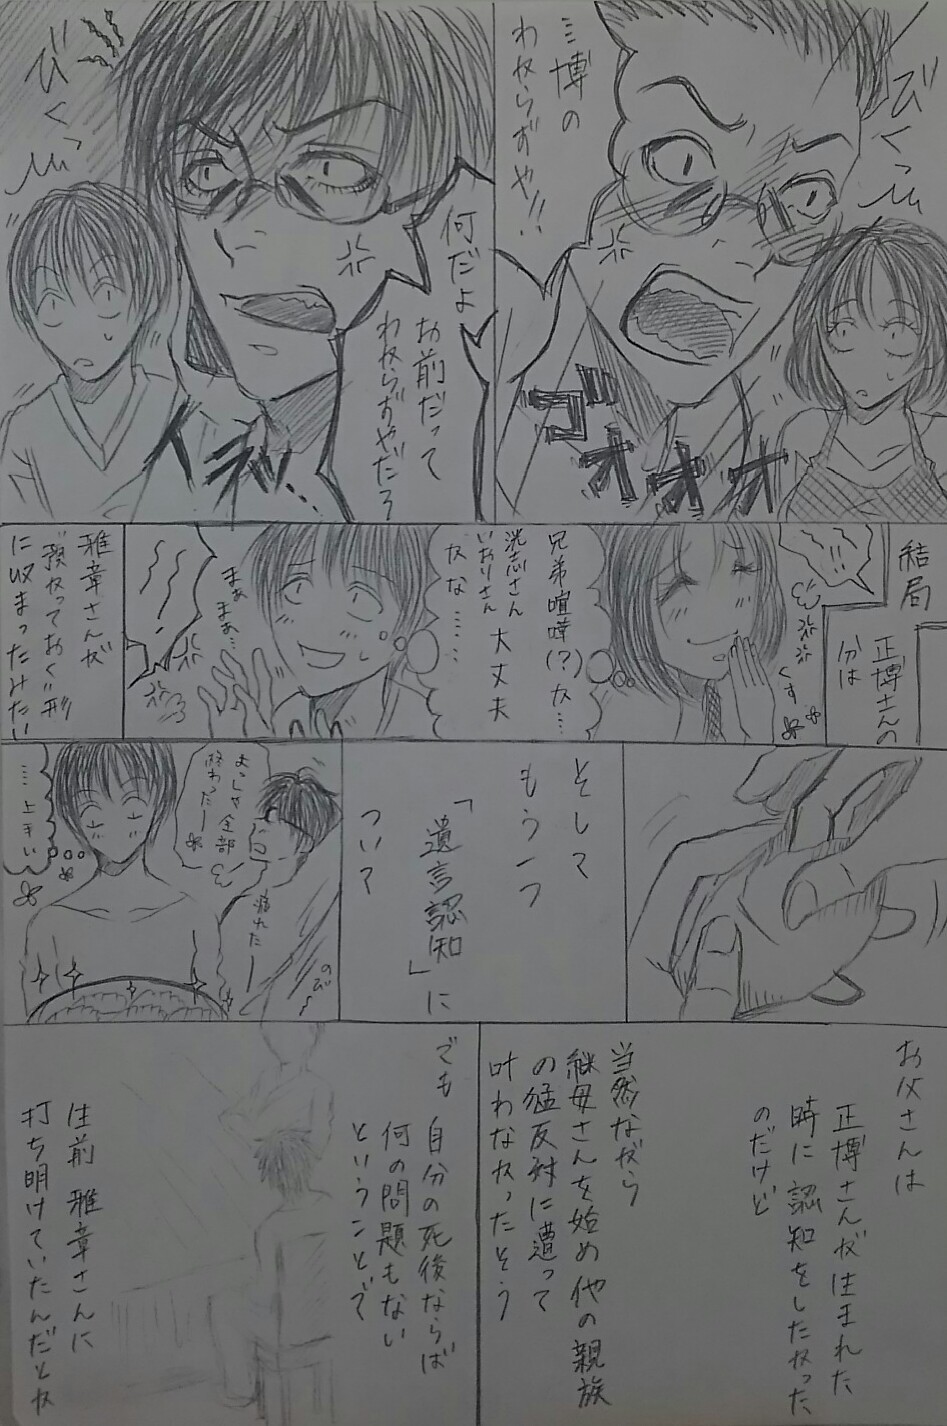 びくっ
…博の
わからずや!!
ゴオオオ
何だよ
お前だって
わからずやだろ
びくっ
結局
正博さんの
分は
くす
兄弟喧嘩(?)な…
洸志さん
いおりさん 大丈夫
かな……
まぁ
まぁ…
雅章さんが
〝預かっておく〟形
に収まったみたい
そして
もう一つ
「遺言認知」に
ついて
よっしゃ全部
終わったー
疲れたー
のび〜
…上手い
お父さんは
正博さんが生まれた
時に認知をしたかった
のだけど
当然ながら
継母さんを始め他の親族
の猛反対に遭って
叶わなかったそう
でも 自分の死後ならば
何の問題もない
ということで
生前 雅章さんに
打ち明けていたんだとか